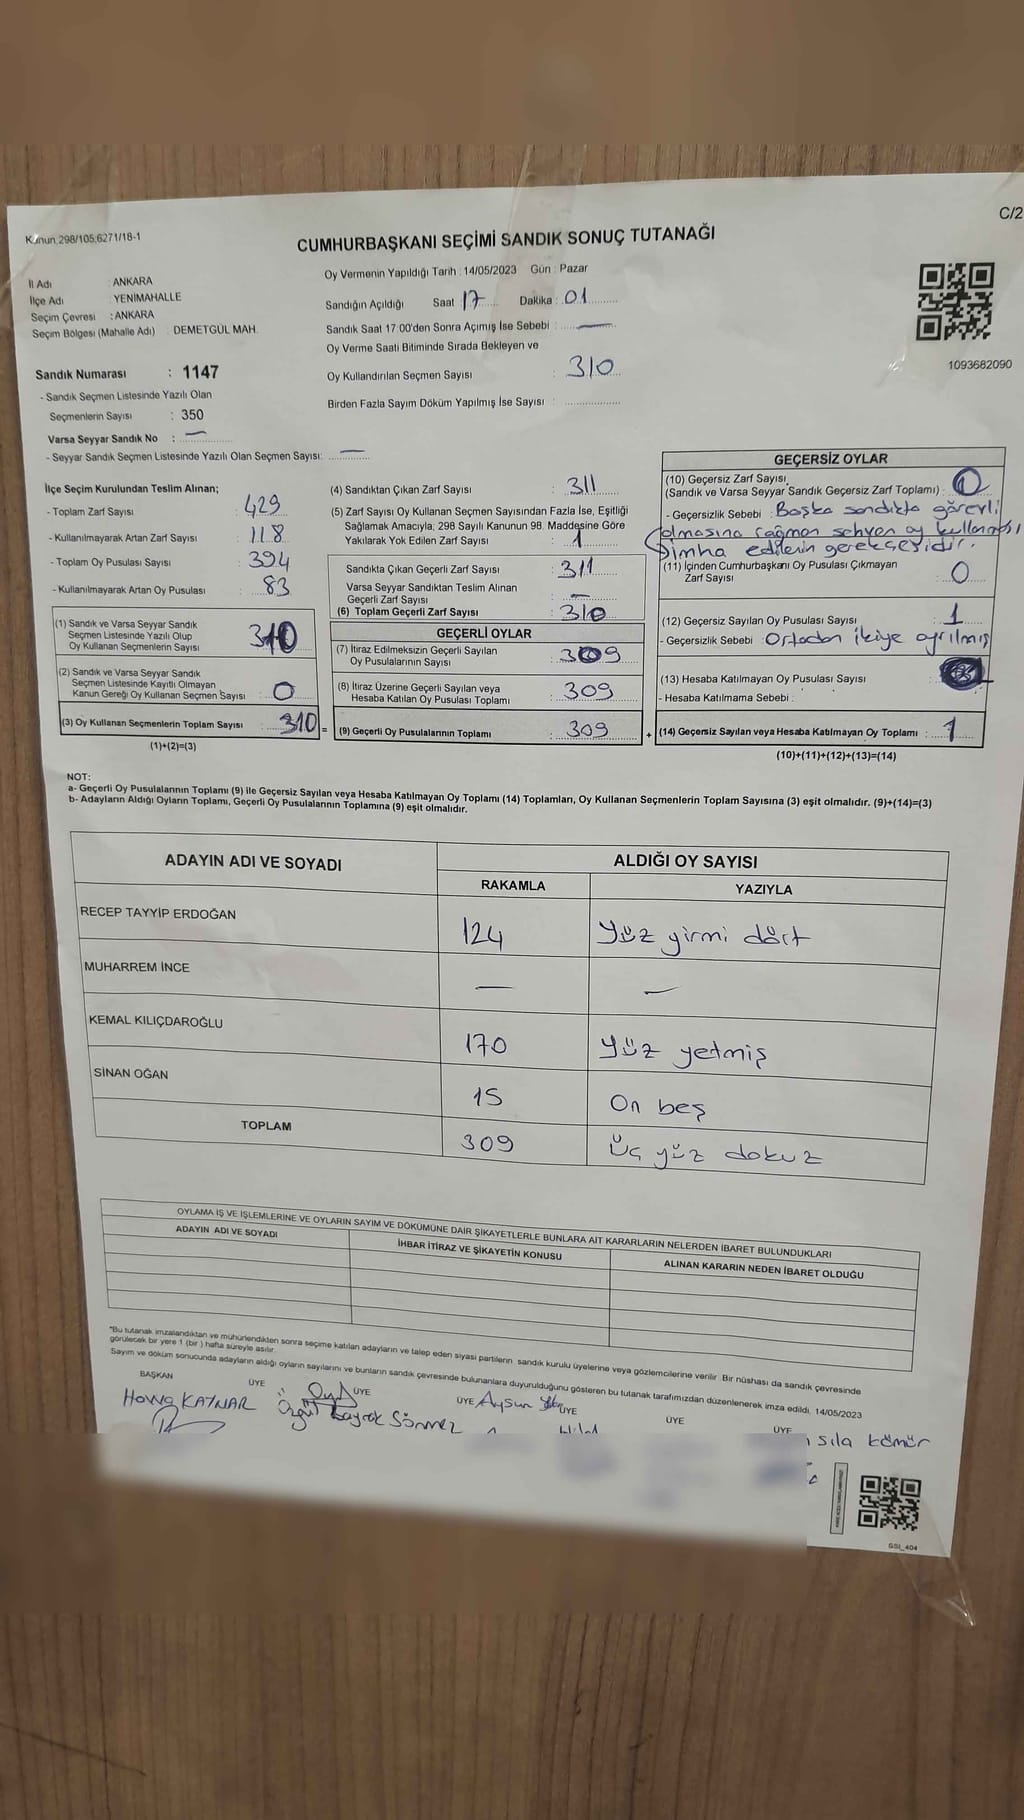 Kanun 298/105;6271/18-1
C/2
CUMHURBAŞKANI SEÇİMİ SANDIK SONUÇ TUTANAĞI
İl Adı : ANKARA
İlçe Adı : YENİMAHALLE
Seçim Çevresi : ANKARA
Seçim Bölgesi (Mahalle Adı) : DEMETGÜL MAH.
Oy Vermenin Yapıldığı Tarih : 14/05/2023 Gün : Pazar
Sandığın Açıldığı Saat : 17 Dakika : 01
Sandık Saat 17.00'den Sonra Açımış İse Sebebi : —
Oy Verme Saati Bitiminde Sırada Bekleyen ve
Oy Kullandırılan Seçmen Sayısı : 310
Birden Fazla Sayım Döküm Yapılmış İse Sayısı :
1093682090
Sandık Numarası : 1147
- Sandık Seçmen Listesinde Yazılı Olan
Seçmenlerin Sayısı : 350
Varsa Seyyar Sandık No : —
- Seyyar Sandık Seçmen Listesinde Yazılı Olan Seçmen Sayısı: —
İlçe Seçim Kurulundan Teslim Alınan;
- Toplam Zarf Sayısı : 429
- Kullanılmayarak Artan Zarf Sayısı : 118
- Toplam Oy Pusulası Sayısı : 394
- Kullanılmayarak Artan Oy Pusulası : 83
(1) Sandık ve Varsa Seyyar Sandık
Seçmen Listesinde Yazılı Olup
Oy Kullanan Seçmenlerin Sayısı : 310
(2) Sandık ve Varsa Seyyar Sandık
Seçmen Listesinde Kayıtlı Olmayan
Kanun Gereği Oy Kullanan Seçmen Sayısı : 0
(3) Oy Kullanan Seçmenlerin Toplam Sayısı : 310 =
(1)+(2)=(3)
(4) Sandıktan Çıkan Zarf Sayısı : 311
(5) Zarf Sayısı Oy Kullanan Seçmen Sayısından Fazla İse, Eşitliği
Sağlamak Amacıyla; 298 Sayılı Kanunun 98. Maddesine Göre
Yakılarak Yok Edilen Zarf Sayısı : 1
Sandıkta Çıkan Geçerli Zarf Sayısı : 311
Varsa Seyyar Sandıktan Teslim Alınan
Geçerli Zarf Sayısı : —
(6) Toplam Geçerli Zarf Sayısı : 310
GEÇERLİ OYLAR
(7) İtiraz Edilmeksizin Geçerli Sayılan
Oy Pusulalarının Sayısı : 309
(8) İtiraz Üzerine Geçerli Sayılan veya
Hesaba Katılan Oy Pusulası Toplamı : 309
(9) Geçerli Oy Pusulalarının Toplamı : 309 +
GEÇERSİZ OYLAR
(10) Geçersiz Zarf Sayısı
(Sandık ve Varsa Seyyar Sandık Geçersiz Zarf Toplamı) : 0
- Geçersizlik Sebebi : Başka sandıkta görevli
olmasına rağmen sehven oy kullanması
imha edilenin gerekçesidir.
(11) İçinden Cumhurbaşkanı Oy Pusulası Çıkmayan
Zarf Sayısı : 0
(12) Geçersiz Sayılan Oy Pusulası Sayısı : 1
- Geçersizlik Sebebi : Ortadan ikiye ayrılmış
(13) Hesaba Katılmayan Oy Pusulası Sayısı
- Hesaba Katılmama Sebebi :
(14) Geçersiz Sayılan veya Hesaba Katılmayan Oy Toplamı : 1
(10)+(11)+(12)+(13)=(14)
NOT:
a- Geçerli Oy Pusulalarının Toplamı (9) ile Geçersiz Sayılan veya Hesaba Katılmayan Oy Toplamı (14) Toplamları, Oy Kullanan Seçmenlerin Toplam Sayısına (3) eşit olmalıdır. (9)+(14)=(3)
b- Adayların Aldığı Oyların Toplamı, Geçerli Oy Pusulalarının Toplamına (9) eşit olmalıdır.
ADAYIN ADI VE SOYADI ALDIĞI OY SAYISI
RAKAMLA YAZIYLA
RECEP TAYYİP ERDOĞAN 124 Yüz yirmi dört
MUHARREM İNCE — —
KEMAL KILIÇDAROĞLU 170 Yüz yetmiş
SİNAN OĞAN 15 On beş
TOPLAM 309 Üç yüz dokuz
OYLAMA İŞ VE İŞLEMLERİNE VE OYLARIN SAYIM VE DÖKÜMÜNE DAİR ŞİKAYETLERLE BUNLARA AİT KARARLARIN NELERDEN İBARET BULUNDUKLARI
ADAYIN ADI VE SOYADI İHBAR İTİRAZ VE ŞİKAYETİN KONUSU ALINAN KARARIN NEDEN İBARET OLDUĞU
*Bu tutanak imzalandıktan ve mühürlendikten sonra seçime katılan adayların ve talep eden siyasi partilerin sandık kurulu üyelerine veya gözlemcilerine verilir. Bir nüshası da sandık çevresinde
görülecek bir yere 1 (bir ) hafta süreyle asılır.
Sayım ve döküm sonucunda adayların aldığı oyların sayılarını ve bunların sandık çevresinde bulunanlara duyurulduğunu gösteren bu tutanak tarafımızdan düzenlenerek imza edildi. 14/05/2023
BAŞKAN ÜYE ÜYE ÜYE ÜYE ÜYE ÜYE
KAYNAR Sönmez Aysun Sıla Kömür
GSI_404